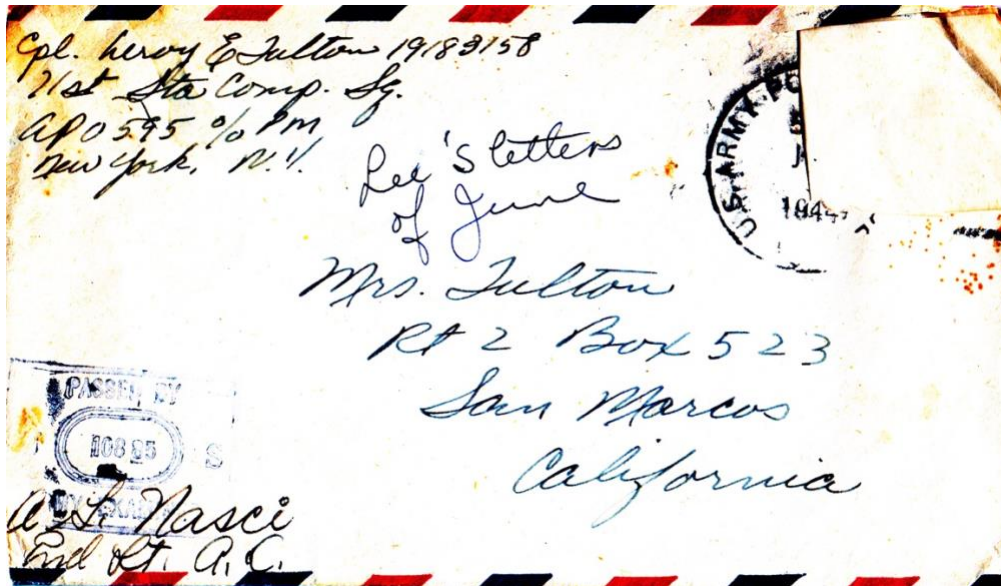 Cpl. Leroy E Fulton 19183158
71st Sta Comp. Sq.
APO 595 % PM
New York, N.Y.
Lee's letters
of June
U.S. ARMY PO
194
Mrs. Fulton
Rt 2 Box 523
San Marcos
California
PASSED BY
S
A. L. Nasci
2nd Lt. A.C.